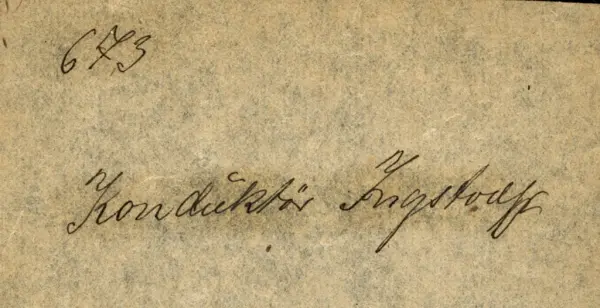 673
Konduktör Ingstad